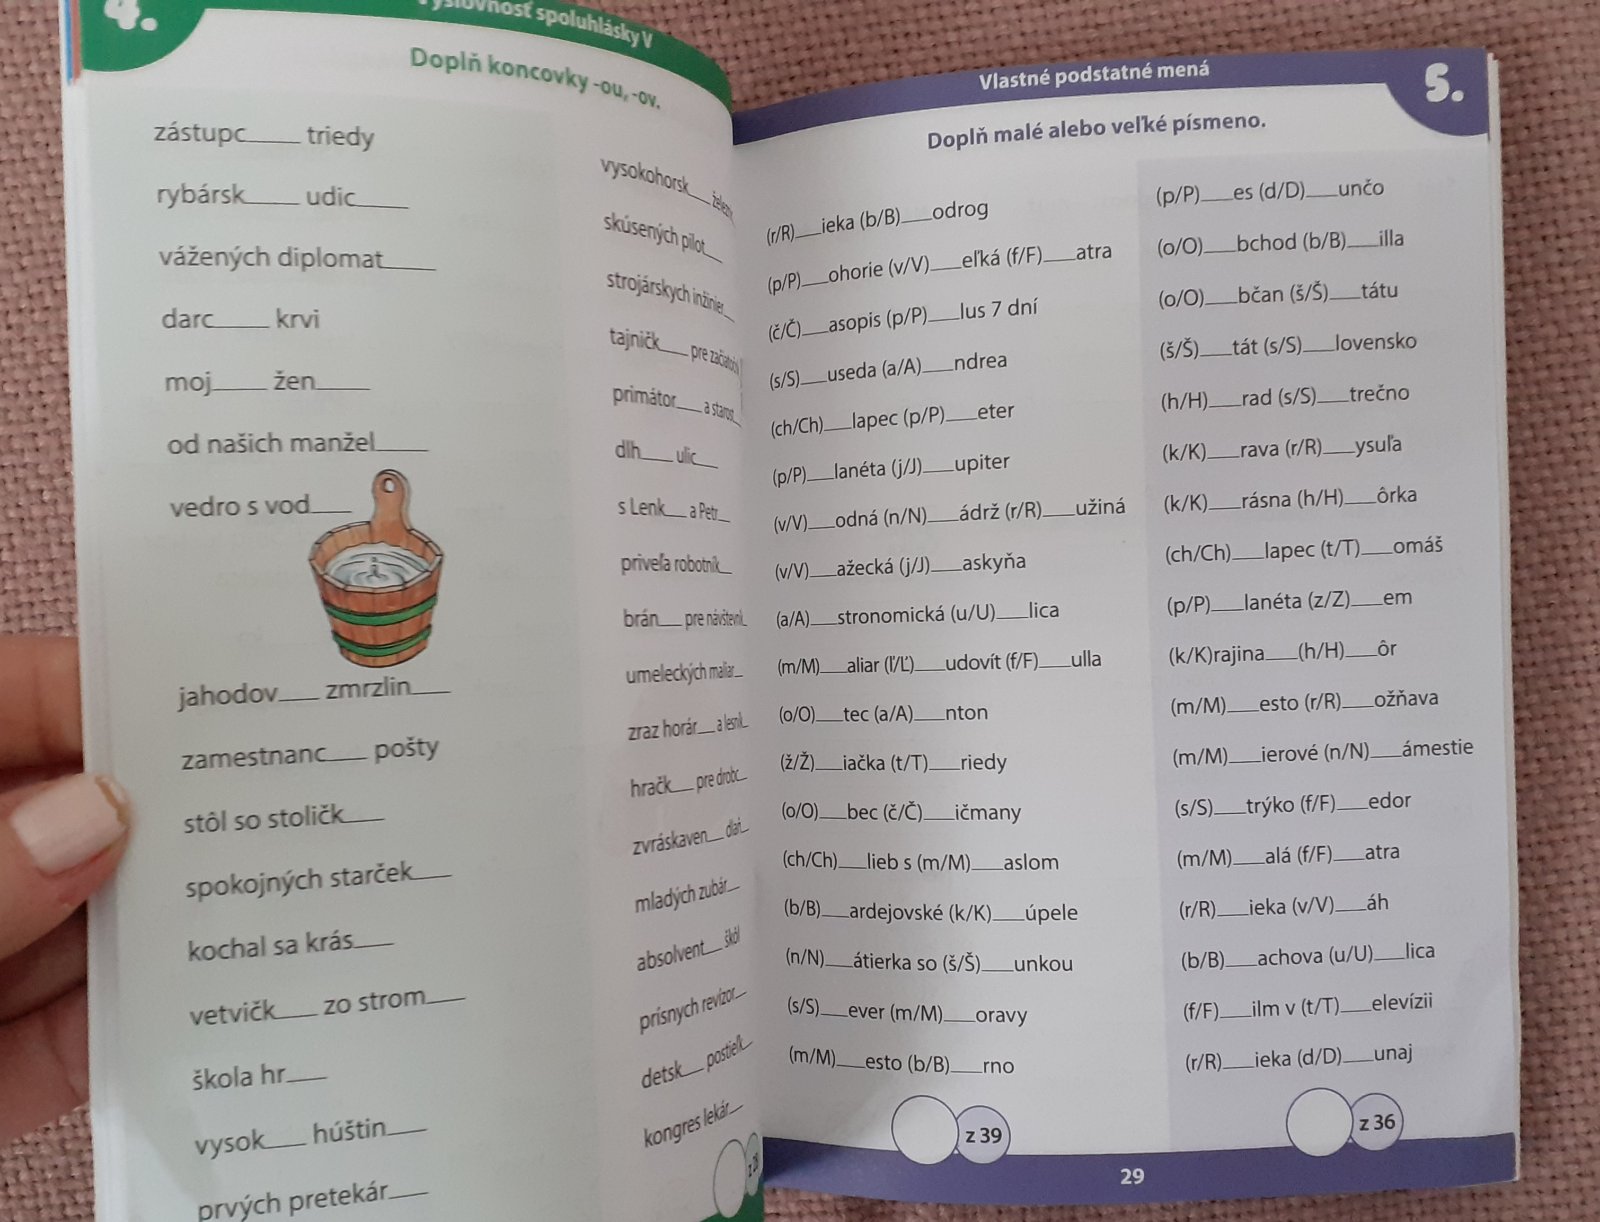 4.
Výslovnosť spoluhlásky V
Doplň koncovky -ou, -ov.
zástupc____ triedy
rybársk____ udic____
vážených diplomat____
darc____ krvi
moj____ žen____
od našich manžel____
vedro s vod____
jahodov____ zmrzlin____
zamestnanc____ pošty
stôl so stoličk____
spokojných starček____
kochal sa krás____
vetvičk____ zo strom____
škola hr____
vysok____ húštin____
prvých pretekár____
vysokohorsk____
skúsených pilot____
strojárskych inžinier____
tajničk____ pre
primátor____ a starost____
dlh____ ulic____
s Lenk____ a Petr____
priveľa robotník____
brán____ pre návštevník____
umeleckých maliar____
zraz horár____ a lesník____
hračk____ pre drobc____
zvráskaven____ dlaň____
mladých zubár____
absolvent____ škôl
prísnych revízor____
detsk____ postieľk____
kongres lekár____
5.
Vlastné podstatné mená
Doplň malé alebo veľké písmeno.
(r/R)___ieka (b/B)___odrog
(p/P)___ohorie (v/V)___eľká (f/F)___atra
(č/Č)___asopis (p/P)___lus 7 dní
(s/S)___useda (a/A)___ndrea
(ch/Ch)___lapec (p/P)___eter
(p/P)___lanéta (j/J)___upiter
(v/V)___odná (n/N)___ádrž (r/R)___užiná
(v/V)___ažecká (j/J)___askyňa
(a/A)___stronomická (u/U)___lica
(m/M)___aliar (ľ/Ľ)___udovít (f/F)___ulla
(o/O)___tec (a/A)___nton
(ž/Ž)___iačka (t/T)___riedy
(o/O)___bec (č/Č)___ičmany
(ch/Ch)___lieb s (m/M)___aslom
(b/B)___ardejovské (k/K)___úpele
(n/N)___átierka so (š/Š)___unkou
(s/S)___ever (m/M)___oravy
(m/M)___esto (b/B)___rno
z 39
(p/P)___es (d/D)___unčo
(o/O)___bchod (b/B)___illa
(o/O)___bčan (š/Š)___tátu
(š/Š)___tát (s/S)___lovensko
(h/H)___rad (s/S)___trečno
(k/K)___rava (r/R)___ysuľa
(k/K)___rásna (h/H)___ôrka
(ch/Ch)___lapec (t/T)___omáš
(p/P)___lanéta (z/Z)___em
(k/K)rajina___(h/H)___ôr
(m/M)___esto (r/R)___ožňava
(m/M)___ierové (n/N)___ámestie
(s/S)___trýko (f/F)___edor
(m/M)___alá (f/F)___atra
(r/R)___ieka (v/V)___áh
(b/B)___achova (u/U)___lica
(f/F)___ilm v (t/T)___elevízii
(r/R)___ieka (d/D)___unaj
z 36
29